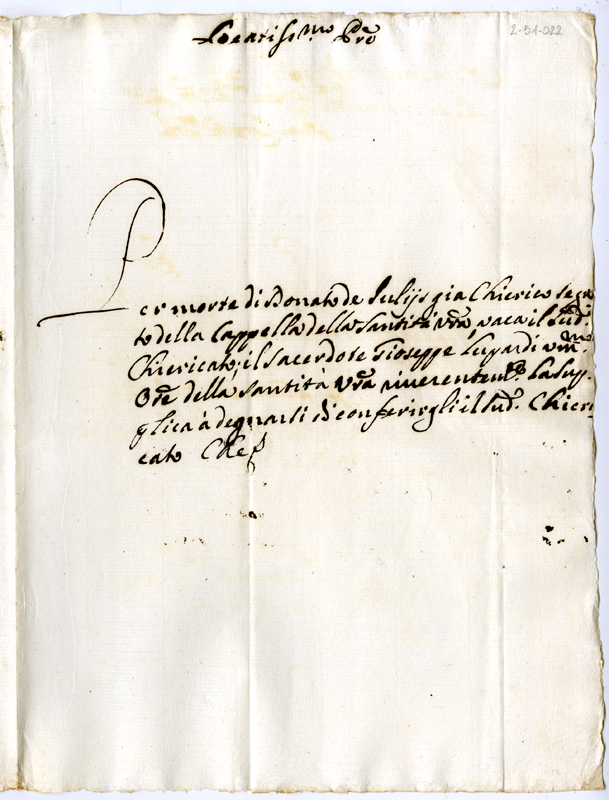 2-51-022
Beatiss.mo Pre
Per morte di Donato de Julijs gia Chierico segre
to della Cappella della Santità Vra, vaca il sud.
Chiericato, il Sacerdote Gioseppe Lugardi um.mo
Ore della Santità Vra riverentem.te la sup
plica à degnarsi di conferirgli il sud. Chieri
cato Che